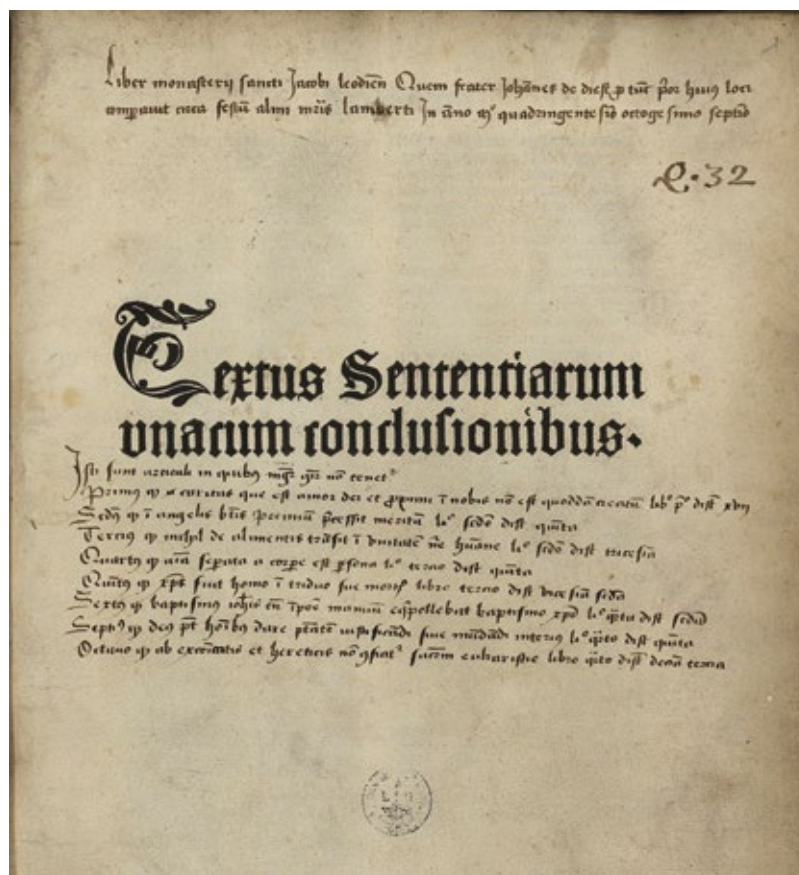 Liber monasterij sancti Jacobi leodiēn Quem frater Johānes de diest p tūc p̄or huiꝰ loci
compauit circa festū almi mr̄is lamberti In āno mº quadringentesiō octogesimo septiō
E·32
Textus Sententiarum
vnacum conclusionibus.
Isti sunt articuli in quibꝰ mḡr nō tenet᷑
Primꝰ qꝫ caritas que est amor dei et ꝓximi ī nobis nō est quoddā creatū libº pº dist xvij
Scd̄ꝰ qꝫ ī angelis btīs premiū p̄cessit meritū liº scd̄o dist quīta
Terciꝰ qꝫ nichil de alimentis trāsit ī vnitatē nē humāne liº scd̄o dist tricesīa
Quartꝰ qꝫ aīa sepata a corpe est psona liº tercio dist quīta
Quītꝰ qꝫ xp̄t fuit homo ī triduo sue mortꝭ libro tercio dist vicesīa scd̄a
Sextꝰ qꝫ baptismꝰ iohīs manuū baptismo xp̄i liº q̄rto dist scd̄a
Septiꝰ qꝫ deꝰ pt̄ hoībꝰ dare ptātē mūdādi interiꝰ liº q̄rto dist quīta
Octauo qꝫ ab excōicatis et hereticis nō ꝯficiat᷑ sacrm̄ eukaristie libro q̄rto dist decīa tercia